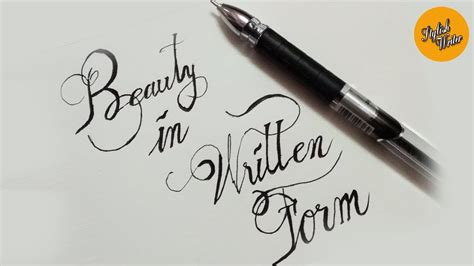 Beauty
in
Written
Form
Stylish
Writer